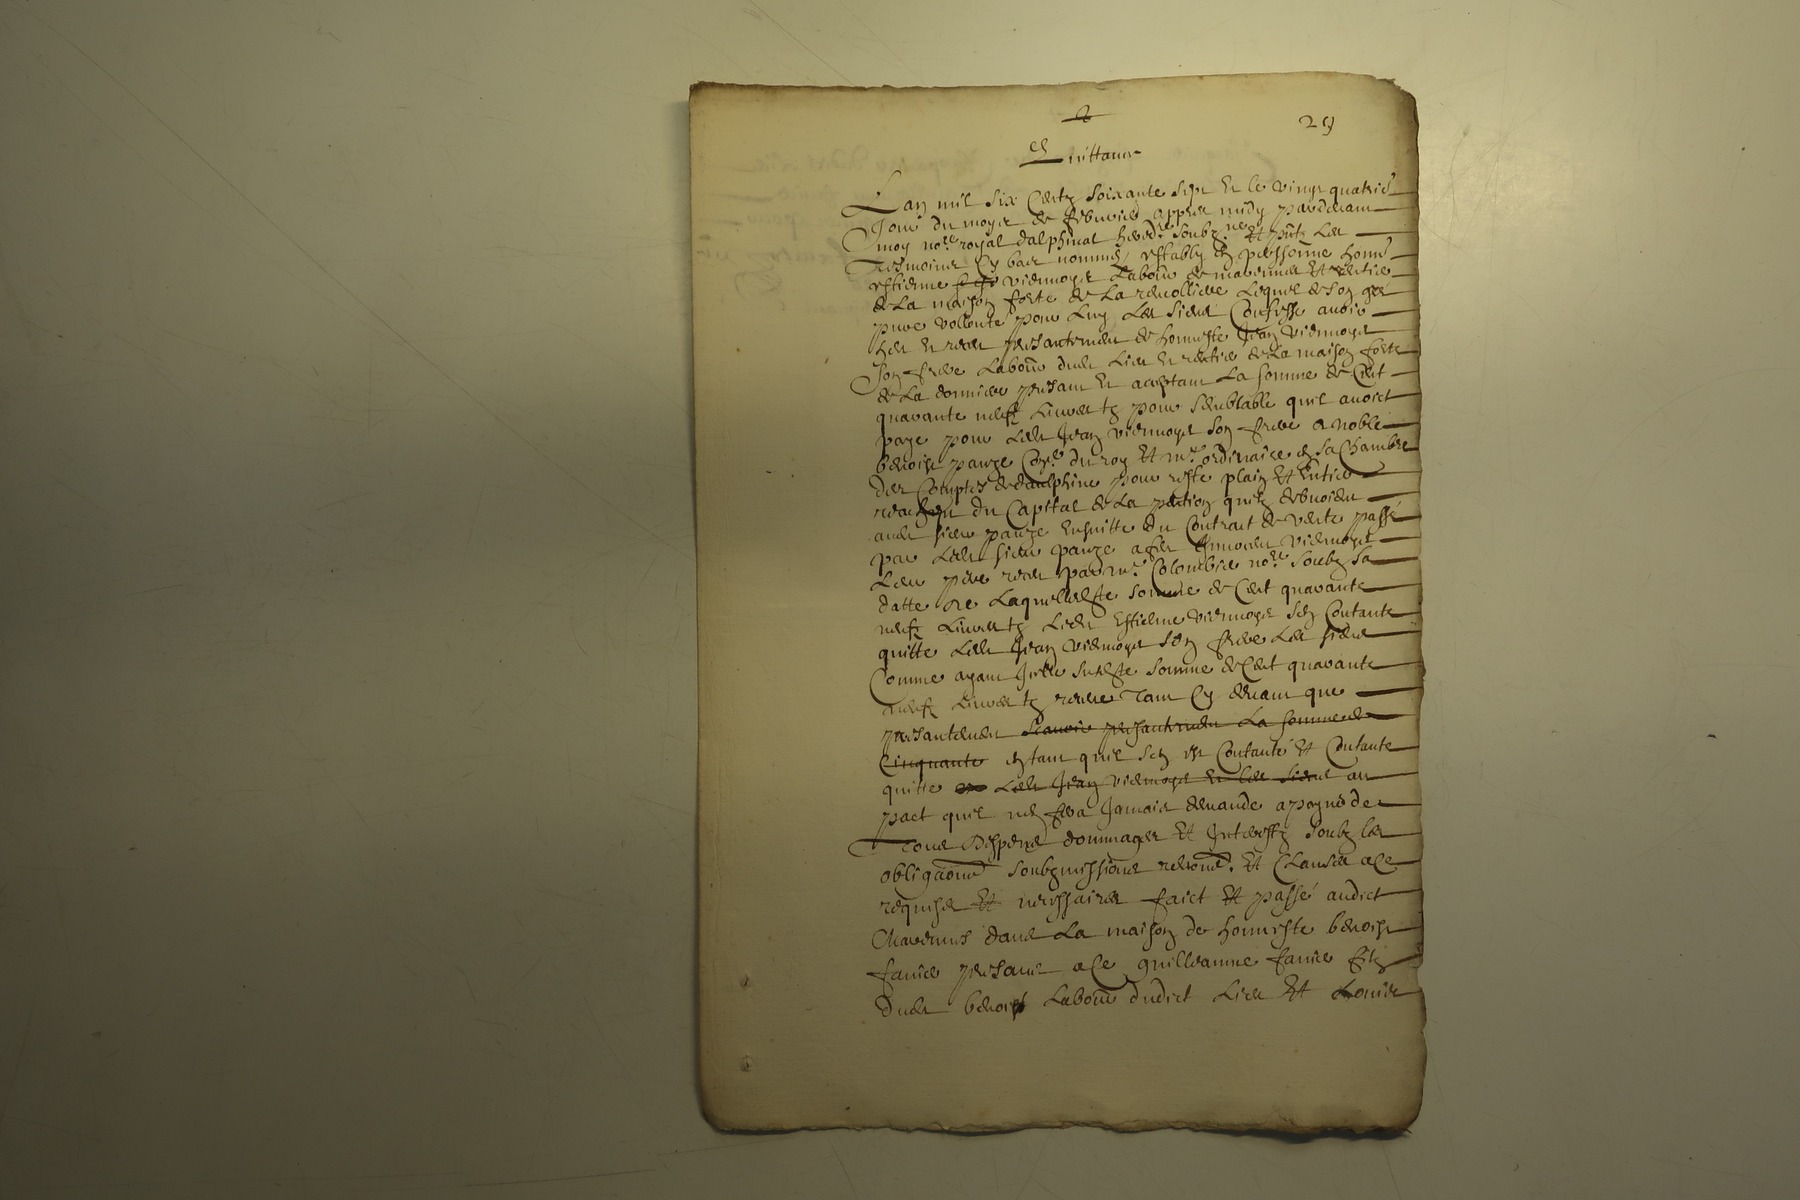 29
Quittance
Lan mil six Centz soixante sept et le vingt quatrie
Jour du moys de febvrier appres midy pardevant
moy no.re royal dalphinal hered.re soubz.ne et puts les
tesmoins Cy bas nommes estably en personne honn
estienne viermoys Labour de et rentier
de La maison forte de La lequel de son gre
pure vollonte pour luy les siens Confesse avoir
heu et receu presantement de honneste Jean viermoys
son frere Labour dudt lieu et rentier de La maison forte
de La presant et aceptant La somme de Cent
quarante neufz Livres tz pour semblable quil avoict
paye pour ledt Jean viermoys son frere a noble
benoist Con.er du roy et m.e ordinaire en sa Chambre
des Comptes de daulphine pour reste plain et entier
du Capital de La pention quilz debvoient
audt sieur ensuitte du Contrait de vente passé
par ledt sieur a feu viermoys
Leur pere receu par m.e Colombier no.re soubz sa
datte de Laquelle somme de Cent quarante
neufz Livres tz Ledt estienne viermoys sen Contante
quitte ledt Jean viermoys son frere les siens
Comme ayant Icelle susdte somme de Cent quarante
neufz Livres tz receue tant Cy devant que
presantement scavoir presantement La somme de
Cinquante entant quil sen est Contanté et Contante
quitte ledt Jean viermoys et les siens au
pact quil nen fera Jamais demande a poyne de
tous despens dommages et Interestz soubz les
obligaons soubzmissions renons. et Clauses a Ce
requises et necessaires faict et passé audict
dans La maison de honneste benoist
favier presant a Ce guilleaume favier filz
dudt benoist Labour dudict lieu et Louis